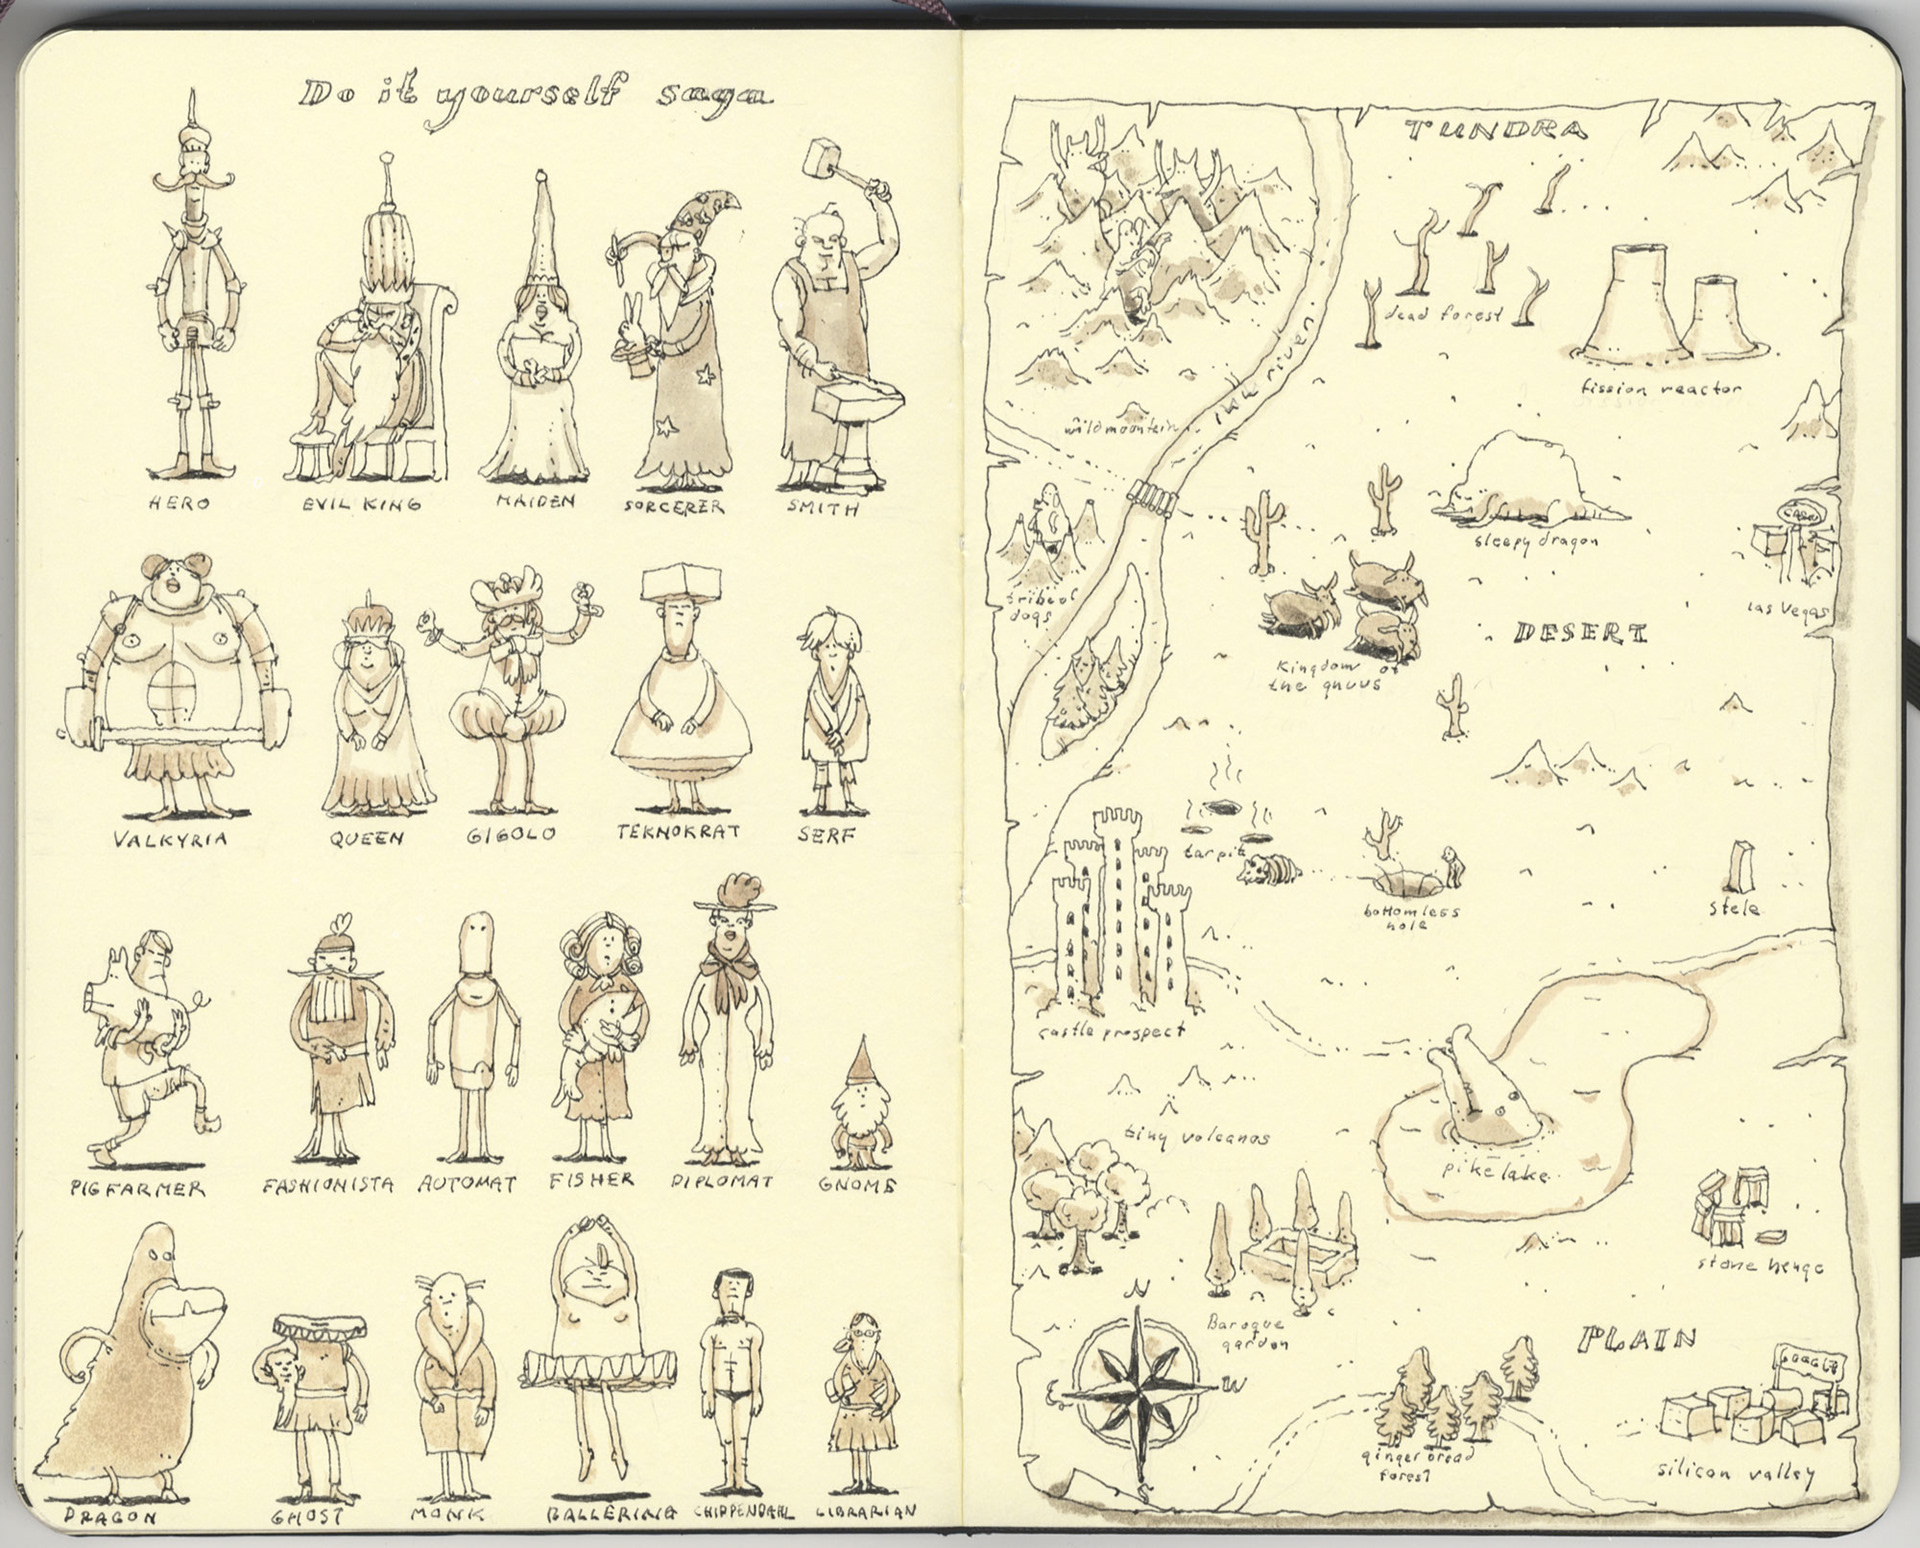 Do it yourself saga
HERO
EVIL KING
MAIDEN
SORCERER
SMITH
VALKYRIA
QUEEN
GIGOLO
TEKNOKRAT
SERF
PIGFARMER
FASHIONISTA
AUTOMAT
FISHER
DIPLOMAT
GNOME
DRAGON
GHOST
MONK
BALLERINA
CHIPPENDAHL
LIBRARIAN
TUNDRA
dead forest
fission reactor
river
wildmountain
sleepy dragon
tribe of
dogs
las Vegas
DESERT
Kingdom of
the gnuus
tarpit
bottomless
hole
stele
castle prospect
tiny volcanos
pike lake
stone henge
N
Baroque
garden
PLAIN
W
GOOGLE
ginger bread
forest
silicon valley
S